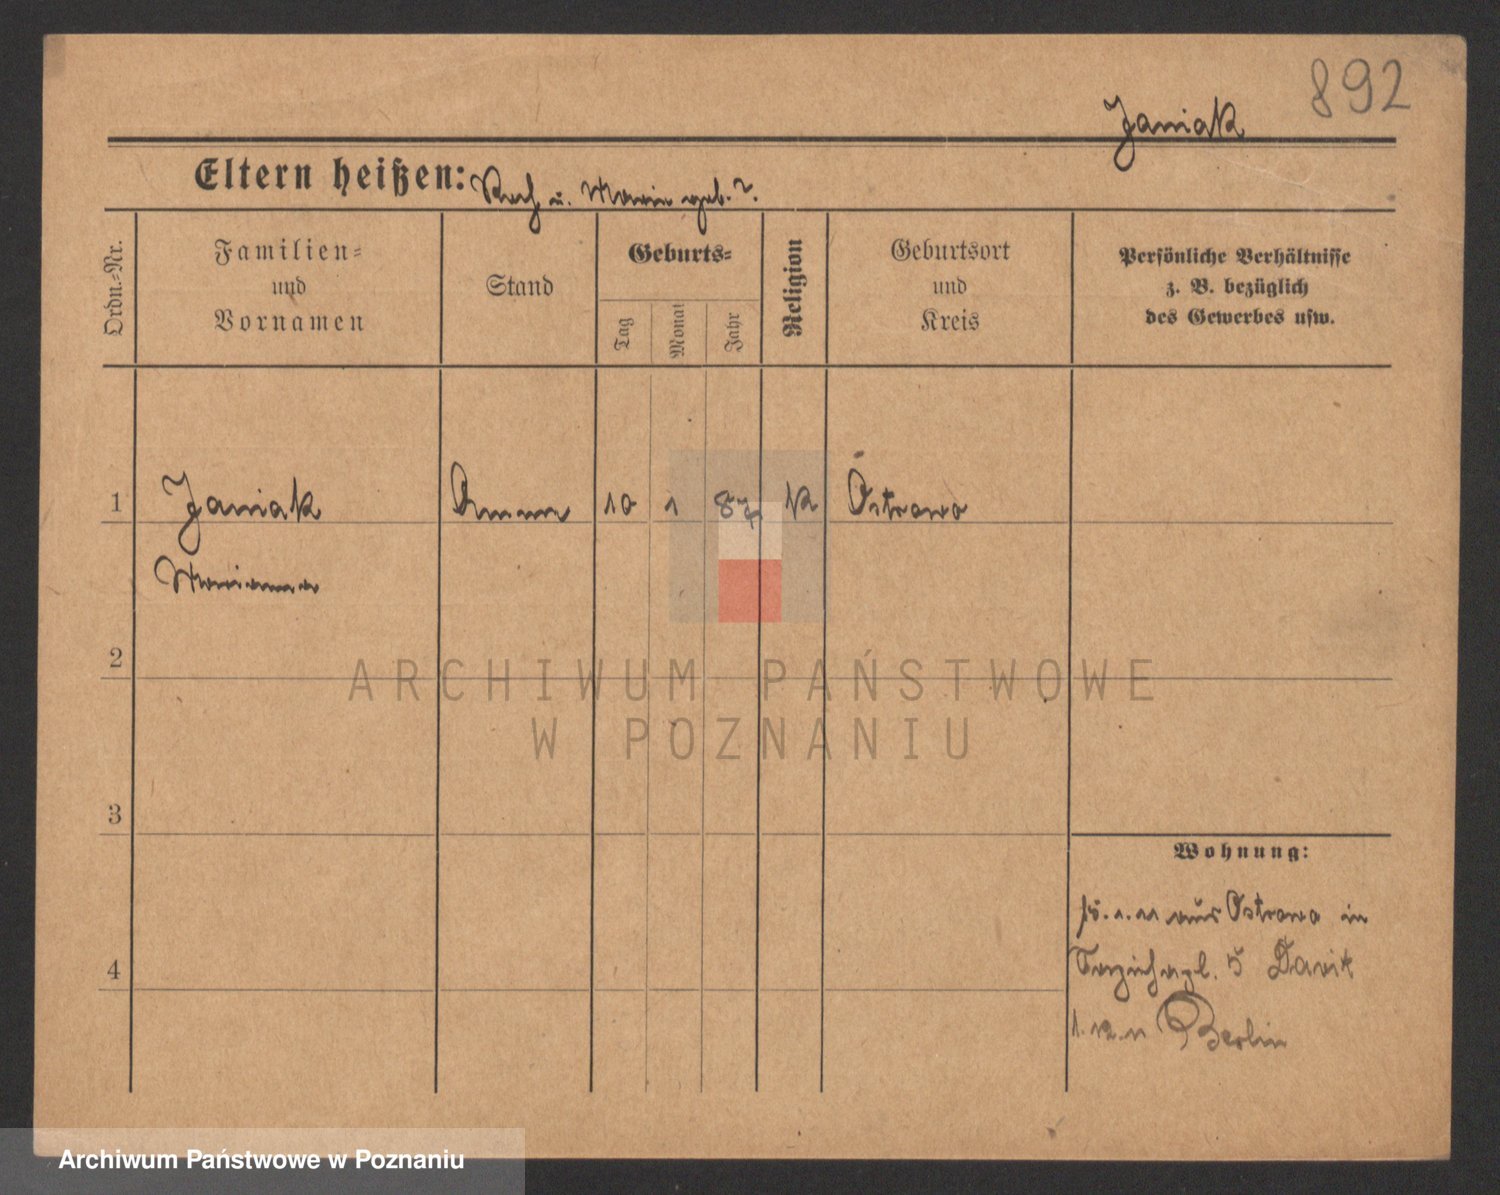 892
Janiak
Eltern heißen: Roch u. Marie geb. ?.
Ordn.=Nr.
Familien=
und
Vornamen
Stand
Geburts=
Tag
Monat
Jahr
Religion
Geburtsort
und
Kreis
Persönliche Verhältnisse
z. B. bezüglich
des Gewerbes usw.
1 Janiak Amme 10 1 87 k Ostrowo
Marianna
2
3
4
Wohnung:
15. 1. 11 aus Ostrowo in
5
1. 12. 11 Berlin
ARCHIWUM PAŃSTWOWE
W POZNANIU
Archiwum Państwowe w Poznaniu